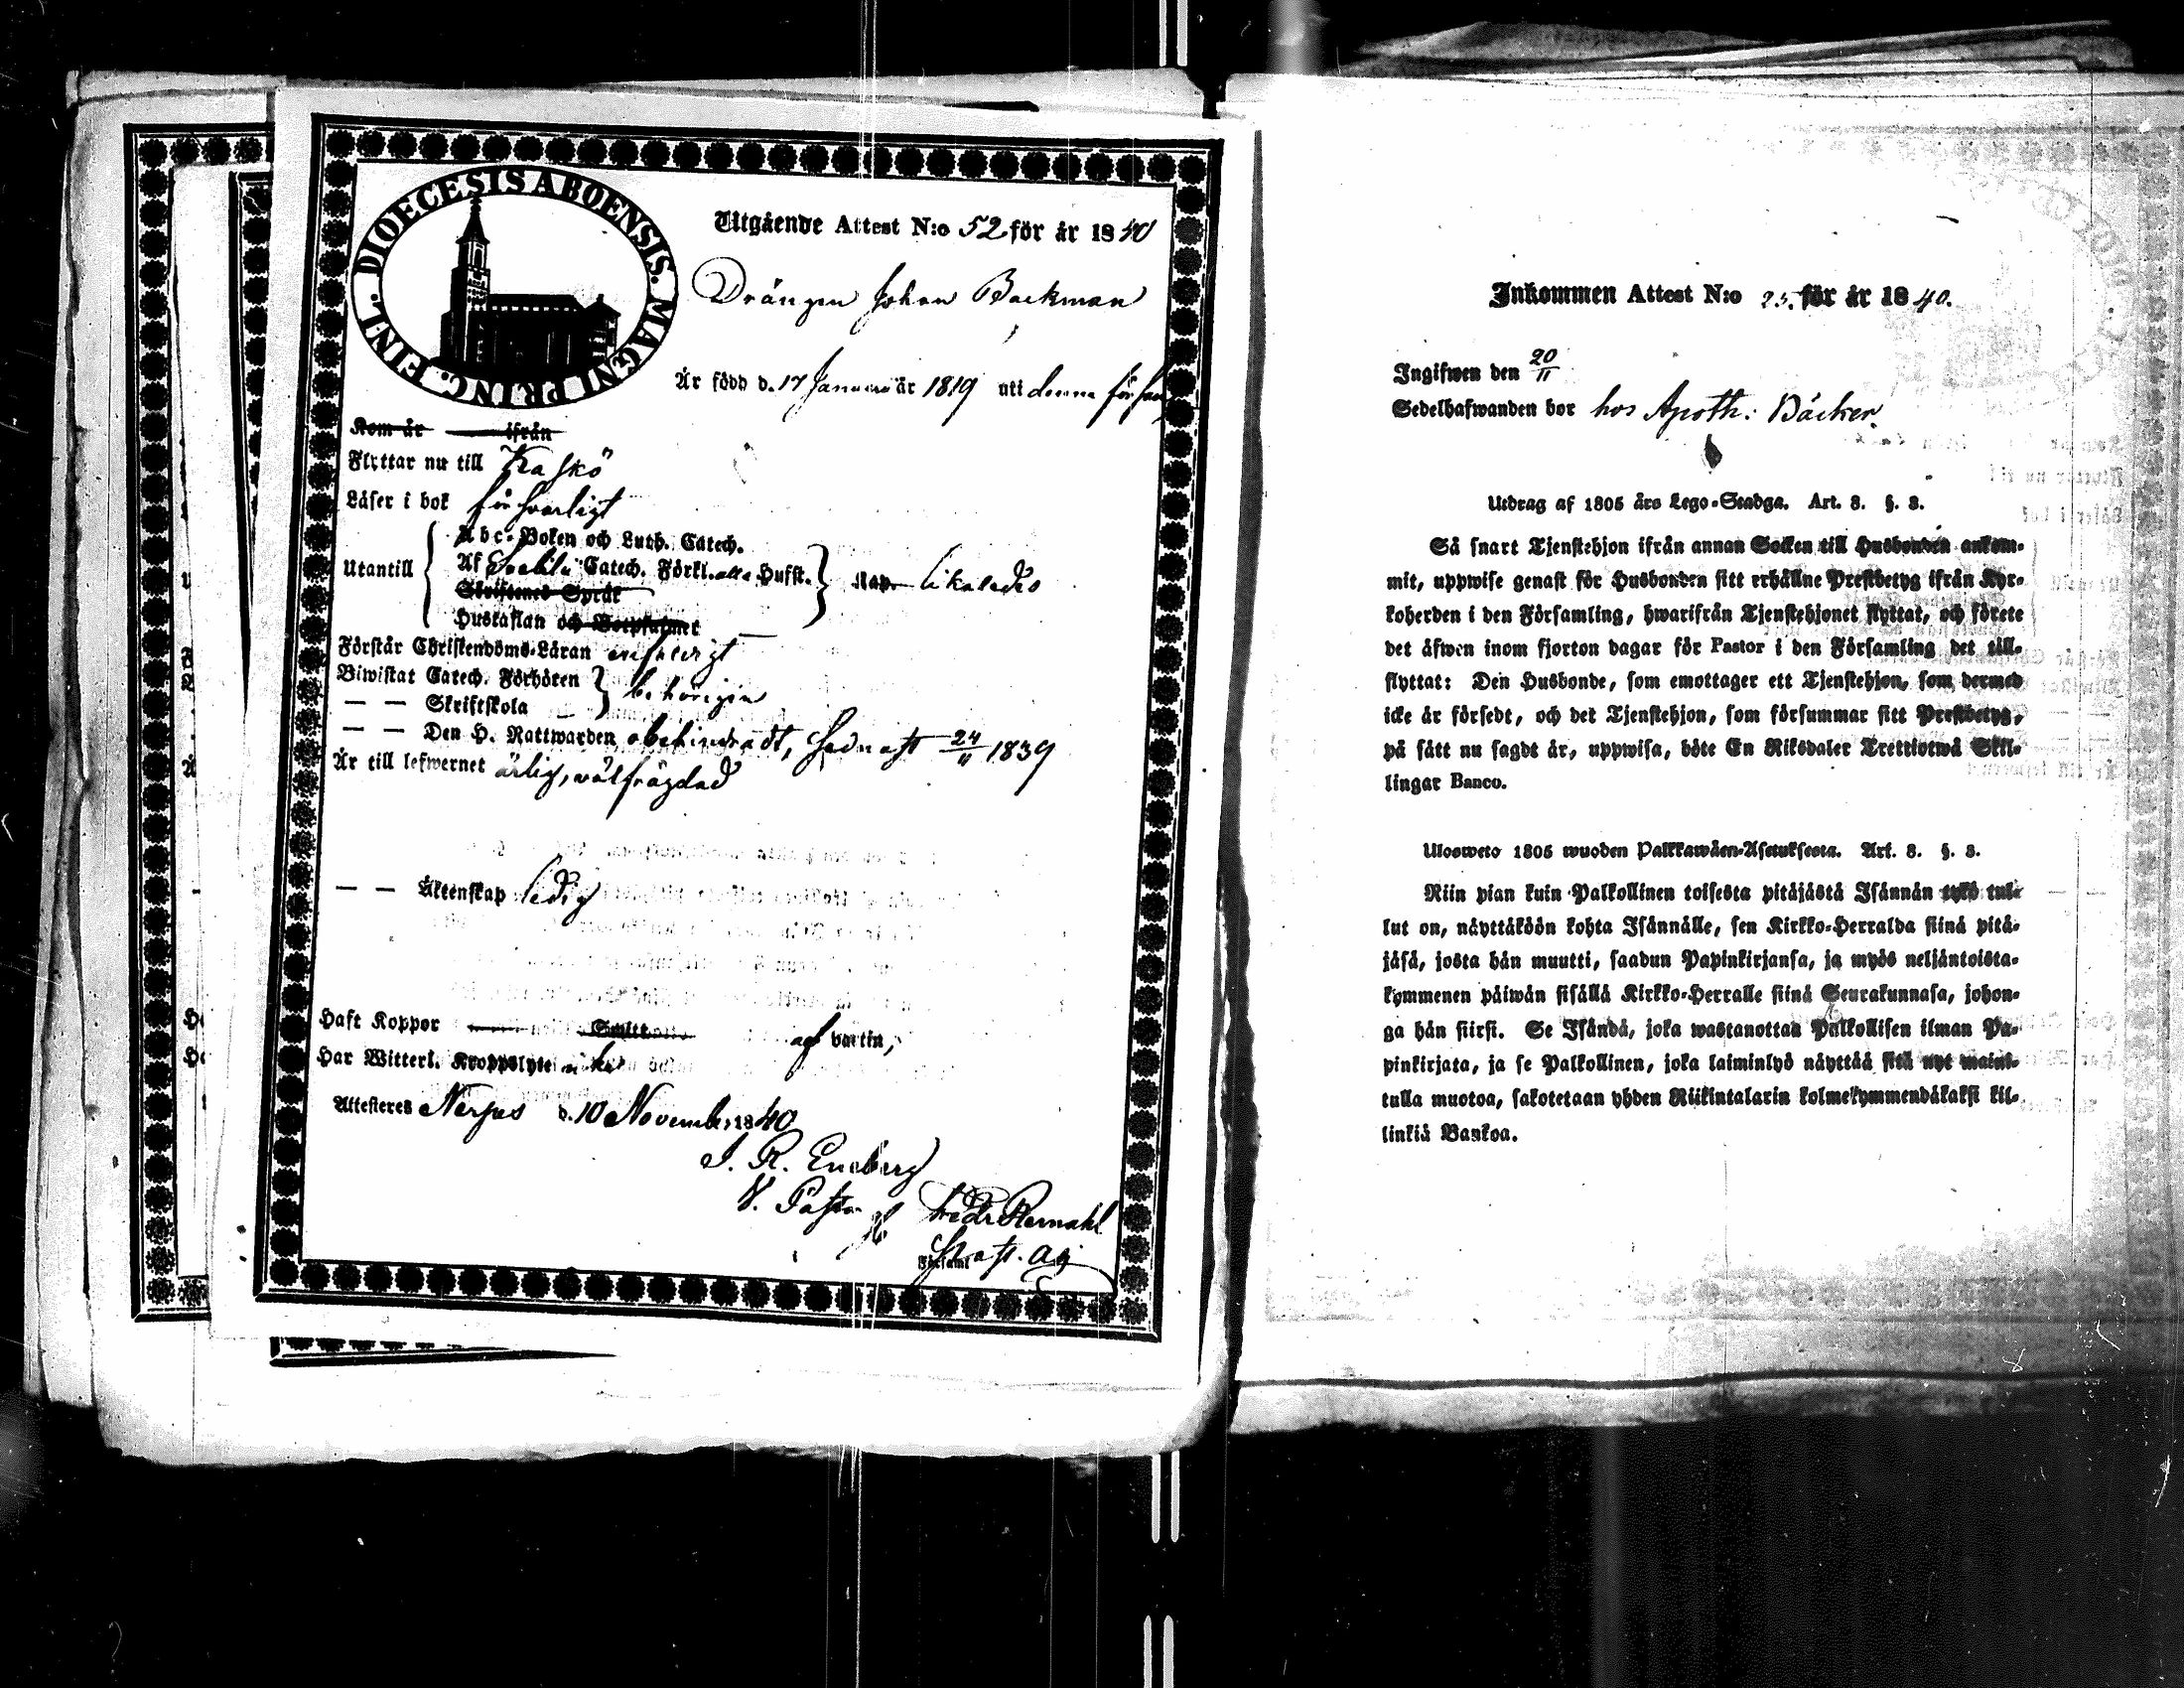 DIOECESIS ABOENSIS. MAGNI PRINC. FINL.
Utgående Attest N:o 52 för år 1840
Drängen Johan Backman
Är född d. 17 Januarii år 1819 uti denna förs
Kom år ifrån
Flyttar nu till Kaskö
Läser i bok försvarligt
Utantill
Abc-Boken och Luth. Catech.
Af Svebilii Catech. Förkl. alla Hufst.
Skriftenes Språk
Hustaflan och Botpsalmer
likaledes
Förstår Christendoms-Läran enfaldigt
Biwistat Catech. Förhören
— — Skriftskola
behörigen
— — Den H. Nattwarden obehindradt, sednast 24/11 1839
Är till lefwernet ärlig, välfrägdad
— — Äktenskap ledig
Haft Koppor af vaccin,
Har Witterl. Kroppslyte
Attesteres Nerpes d. 10 November 1840
J. R. Eneberg
V. Pastor
Församl.
Inkommen Attest N:o 25. för år 1840.
Ingifwen den 20/11
Sedelhafwanden bor hos Apoth: Bäcker.
Utdrag af 1805 års Lego-Stadga. Art. 3. §. 3.
Så snart Tjenstehjon ifrån annan Socken till Husbonden ankom-
mit, uppwise genast för Husbonden sitt erhållne Prestbetyg ifrån Kyr-
koherden i den Församling, hwarifrån Tjenstehjonet flyttat, och förete
det äfwen inom fjorton dagar för Pastor i den Församling det till-
flyttat: Den Husbonde, som emottager ett Tjenstehjon, som dermed
icke är försedt, och det Tjenstehjon, som försummar sitt Prestbetyg,
på sätt nu sagdt är, uppwisa, böte En Riksdaler Trettiotwå Skil-
lingar Banco.
Ulosweto 1805 wuoden Palkkawäen-Asetuksesta. Art. 3. §. 3.
Niin pian kuin Palkollinen toisesta pitäjästä Isännän tykö tul-
lut on, näyttäköön kohta Isännälle, sen Kirkko-Herralda siinä pitä-
jäsä, josta hän muutti, saadun Papinkirjansa, ja myös neljäntoista-
kymmenen päiwän sisällä Kirkko-Herralle siinä Seurakunnasa, johon-
ga hän siirsi. Se Isändä, joka wastanottaa Palkollisen ilman Pa-
pinkirjata, ja se Palkollinen, joka laiminlyö näyttää sitä nyt maini-
tulla muotoa, sakotetaan yhden Riikintalarin kolmekymmendäkaksi kil-
linkiä Bankoa.